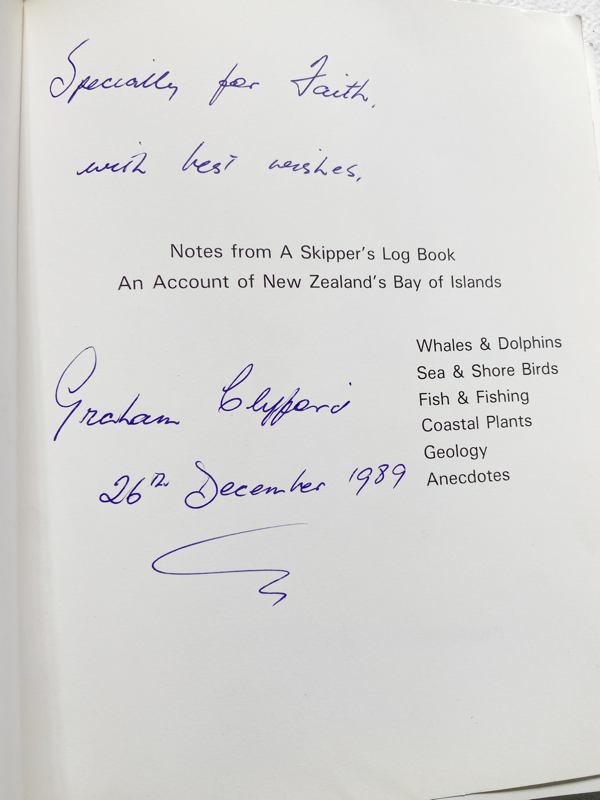 Specially for Faith,
with best wishes,
Notes from A Skipper's Log Book
An Account of New Zealand's Bay of Islands
Whales & Dolphins
Sea & Shore Birds
Fish & Fishing
Coastal Plants
Geology
Anecdotes
Graham Clifford
26th December 1989